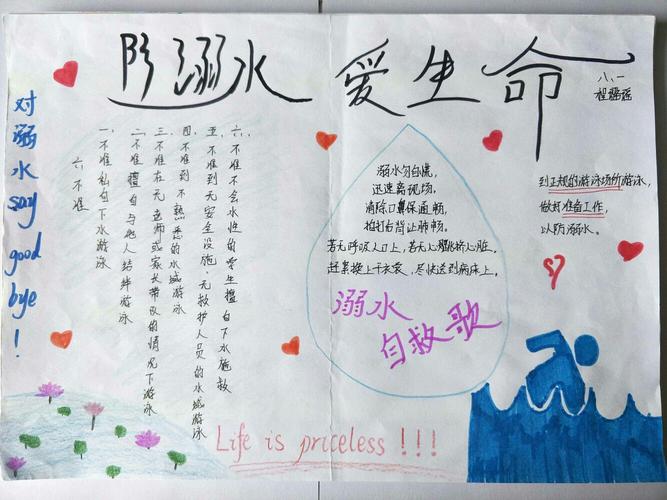 防溺水 爱生命
八.一
对溺水say good bye!
六不准
一、不准私自下水游泳
二、不准擅自与他人结伴游泳
三、不准在无老师或家长带队的情况下游泳
四、不准到不熟悉的水域游泳
五、不准到无安全设施、无救护人员的水域游泳
六、不准不会水性的学生擅自下水施救
溺水勿自慌，
迅速离现场，
清除口鼻保通畅，
拍打背让肺畅，
若无呼吸人口上，若无心跳挤心脏。
赶紧换上干衣裳，尽快送到病床上。
溺水
自救歌
到正规的游泳场所游泳，
做好准备工作，
以防溺水。
Life is priceless!!!